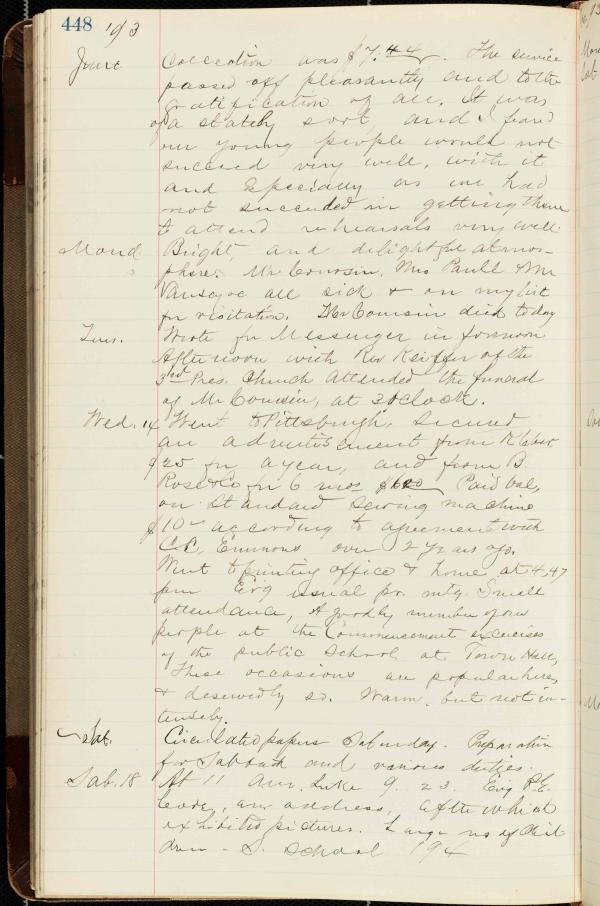 448 193
June Collection was $7.44. The service
passed off pleasantly and to the
gratification of all. It was
of a stately sort, and I feared
our young people would not
succeed very well, with it
and Especially as we had
not succeeded in getting them
to attend rehearsals very well.
Mond. Bright, and delightful atmos-
phere. Mr Cousin, Mrs Paull & Mr
all sick & on my list
for visitation. Mr Cousin died today
Tues. Wrote for Messenger in forenoon
Afternoon with Rev Keiffer of the
3rd Pres. Church attended the funeral
of Mr Cousin, at 3 o'clock.
Wed. 14 Went to Pittsburgh, Secured
an advertisement from Kleber
$25 for a year, and from B.
Rose & Co for 6 mos $6.00 Paid bal,
on Standard Sewing machine
$10 according to agreement with
C.C. Emmons over 2 years ago.
Went to printing office & home at 4,47
pm Ev'g usual pr. mtg. Small
attendance, A goodly number of our
people at the Commencement exercises
of the public School at Town Hall,
These occasions are popular here,
& deservedly so. Warm, but not in-
tensely.
Sat. Circulated papers Saturday. Preparation
for Sabbath and various duties.
Sab. 18 At 11 am. Luke 9. 23. Evg P.E.
an address, after which
exhibited pictures. Large no of Chil
dren - S. School 194